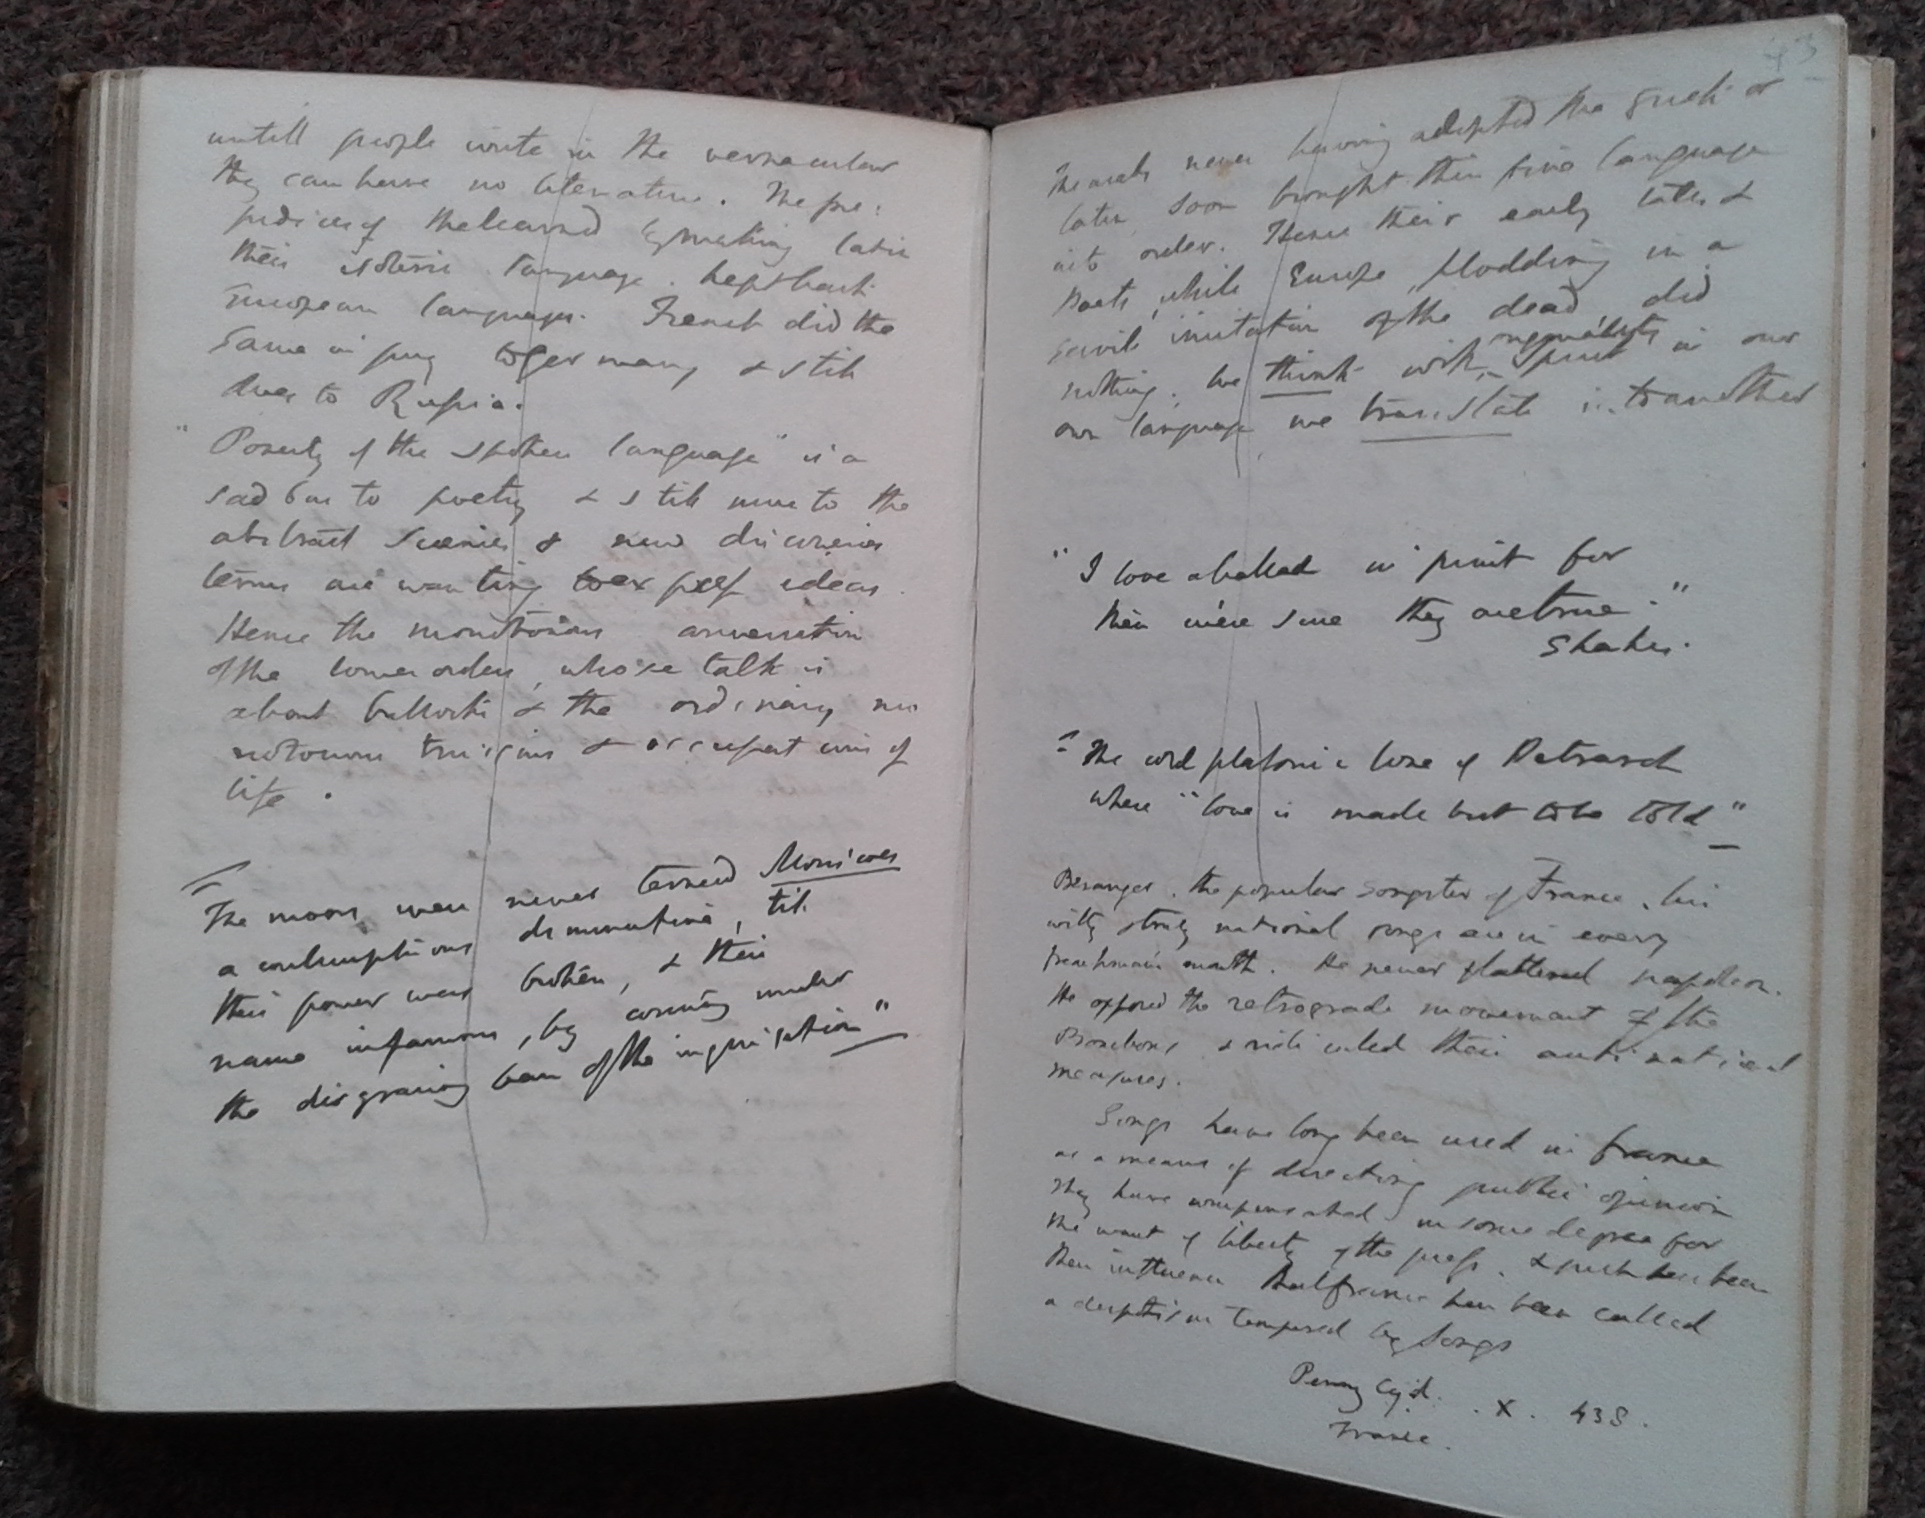 untill people write in the vernacular
they can have no literature. The pre:
judices of the learned by making latin
their isoteric language. kept back
European languages. French did the
same in  to Germany & still
does to Russia.
"Poverty of the spoken language" is a
sad bar to poetry & still more to the
abstract sciences & new discoveries
terms are wanting to express ideas.
Hence the monotonous conversation
of the lower orders, whose talk is
about bullocks & the ordinary mo
notonous  & occupations of
life.
"The moors were never termed Moriscoes
a contemptuous diminutive, till
their power was broken, & their
name infamous, by coming under
the disgracing ban of the inquisition"
43
The arabs never having adopted the Greek or
latin soon brought their fine language
into order. Hence their early tales &
Poets, while Europe, plodding in a
servile imitation of the dead did
nothing. we think with originality spirit in our
own language we translate into another
"I love a ballad in print for
then we're sure they are true."
Shakes.
"The cold platonic love of Petrarch
where "love is made but to be told"
Beranger, the popular songster of France, his
witty truly national songs are in every
frenchman's mouth. He never flattered napoleon.
He opposed the retrograde movement of the
Bourbons & ridiculed their anti national
measures.
Songs have long been used in france
as a means of directing public opinion
they have compensated in some degree for
the want of liberty of the press. & such has been
their influence that france has been called
a despotism tempered by songs
Penny Cycl. . X. 438.
France.